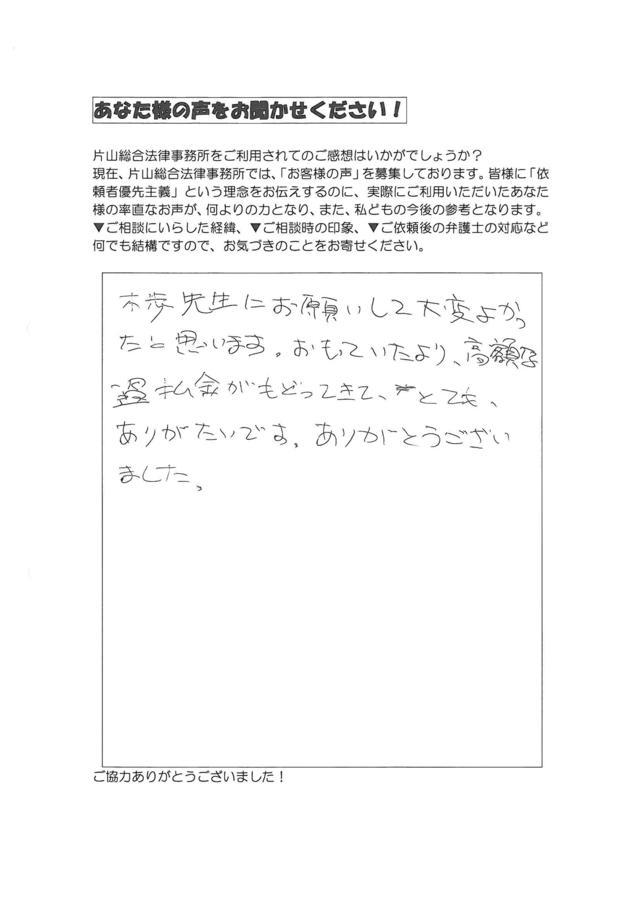 あなた様の声をお聞かせください！
片山総合法律事務所をご利用されてのご感想はいかがでしょうか？
現在、片山総合法律事務所では、「お客様の声」を募集しております。皆様に「依
頼者優先主義」という理念をお伝えするのに、実際にご利用いただいたあなた
様の率直なお声が、何よりの力となり、また、私どもの今後の参考となります。
▼ご相談にいらした経緯、▼ご相談時の印象、▼ご依頼後の弁護士の対応など
何でも結構ですので、お気づきのことをお寄せください。
先生にお願いして大変よかっ
たと思います。おもていたより、高額な
過払金がもどってきて、とても、
ありがたいです。ありがとうござい
ました。
ご協力ありがとうございました！